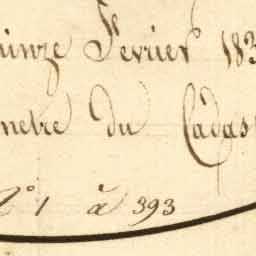 uinze Février 183
metre du Cadas
N° 1 à 393